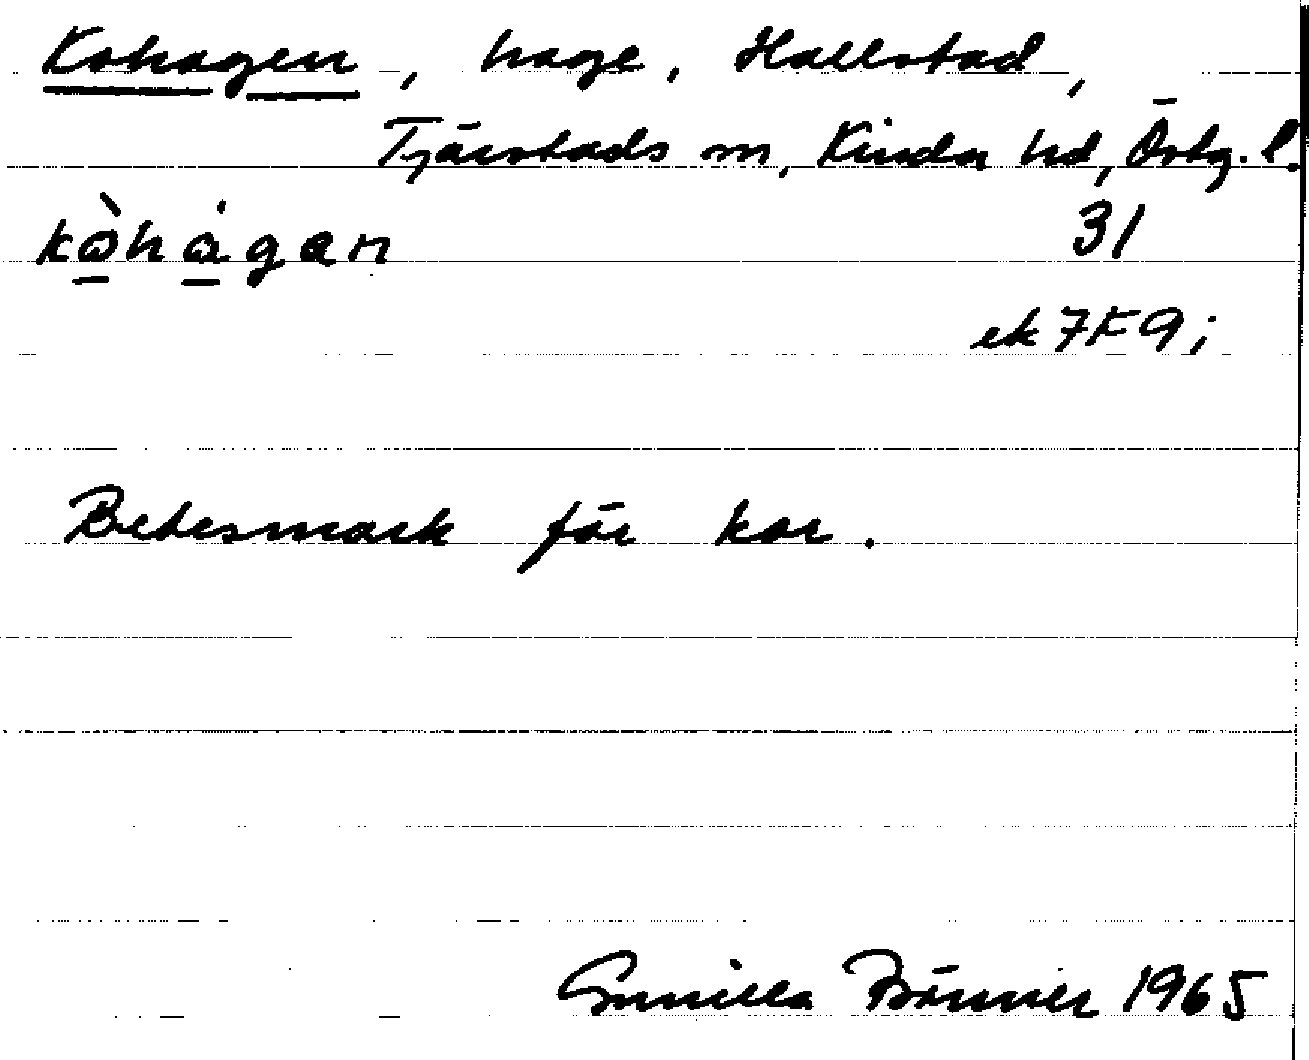 Kohagen, hage, Hallstad,
Tjärstads sn, Kinda hd, Östg. l.
kò̱hàgan
31
ek 7F9i
Betesmark för kor.
Gunilla 1965